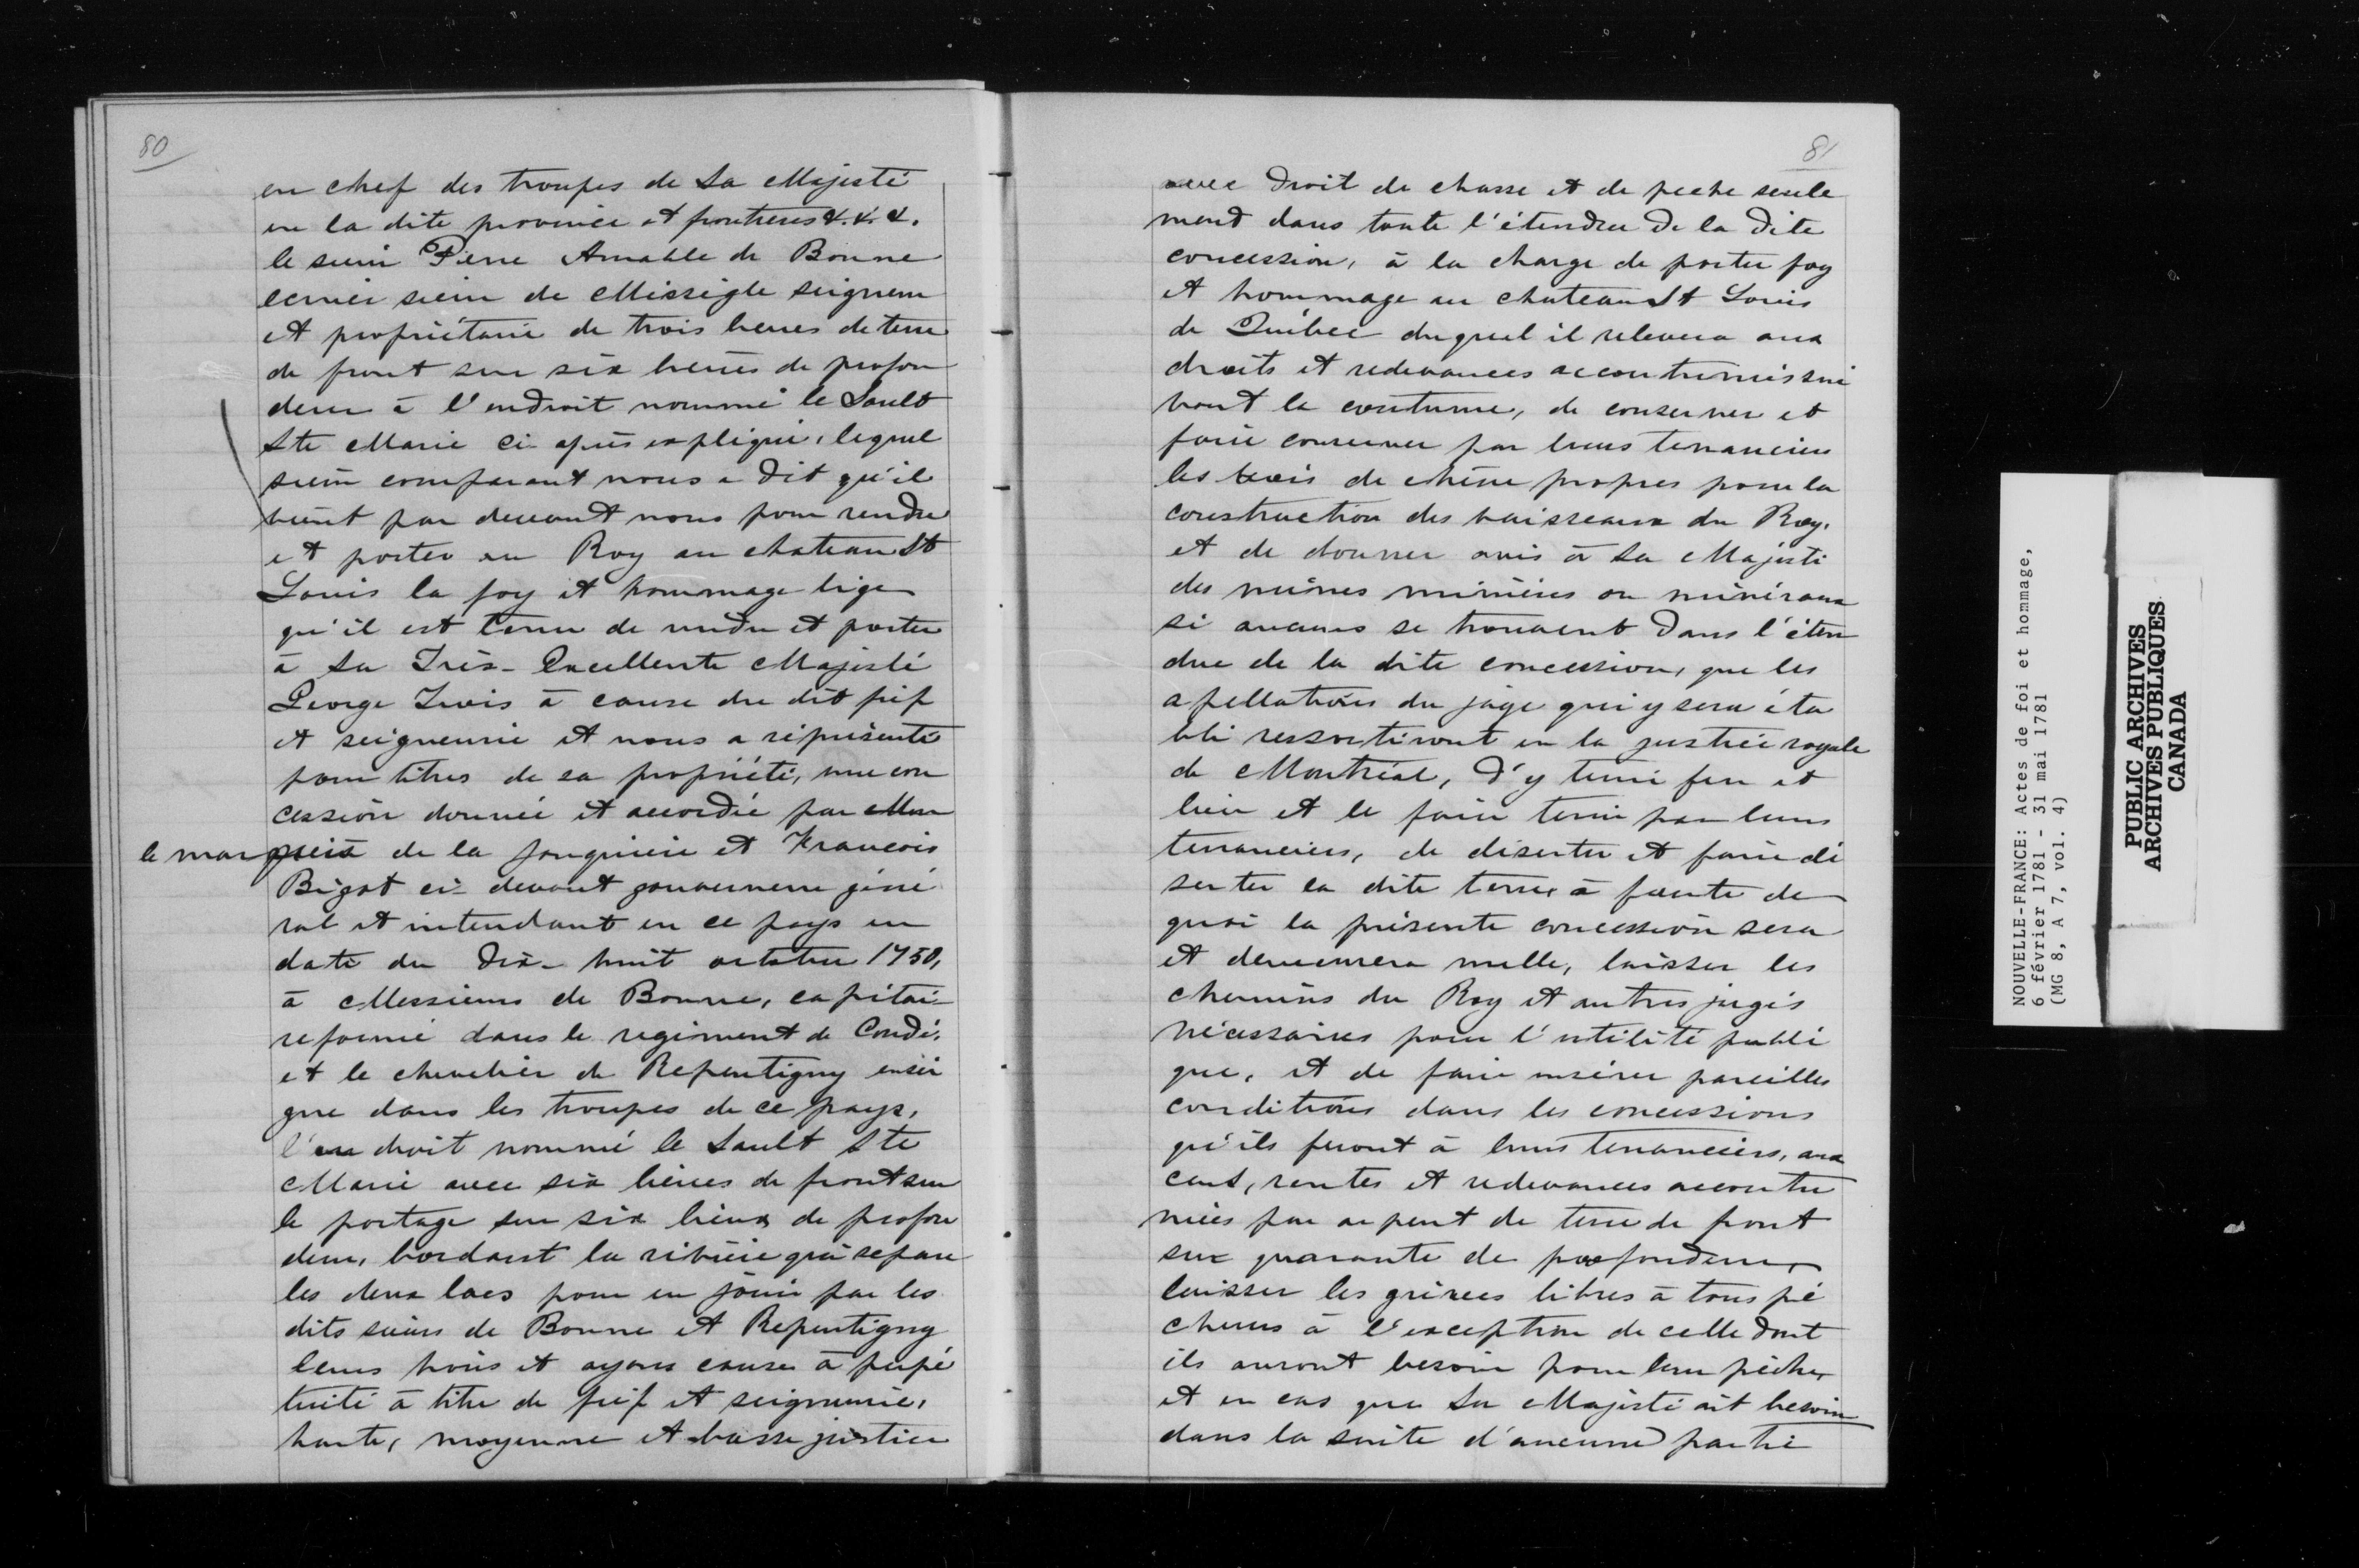 80
en chef des troupes de Sa Majesté
en la dite province et frontieres &. &. &.
le sieur Pierre Amable de Bonne
ecuier sieur de Missegle seigneur
et propriétaire de trois lieues de terre
de front sur six lieues de profon
deur à l'endroit nommé le Sault
Ste Marie ci après expliqué, lequel
sieur comparant nous a dit qu'il
vient par devant nous pour rendre
et porter au Roy au chateau St
Louis la foy et hommage lige
qu'il est tenu de rendre et porter
à Sa Très-Excellente Majesté
George Trois à cause du dit fief
et seigneurie et nous a réprésenté
pour titres de sa propriété, une con
cession donnée et accordée par Mon
le marquis de la Jonquiere et Francois
Bigot ci-devant gouverneur géné
ral et intendant en ce pays en
date du dix-huit octobre 1750,
à Messieurs de Bonne, capitai
reformé dans le regiment de Condé,
et le chevalier de Repentigny ensei
gne dans les troupes de ce pays,
l'endroit nommé le Sault Ste
Marie avec six lieues de front sur
le portage sur six lieux de profon
deur, bordant la riviere qui separe
les deux lacs pour en jouir par les
dits sieurs de Bonne et Repentigny
leurs hoirs et ayans cause à perpé
tuité à titre de fief et seigneurie,
haute, moyenne et basse justice
81
avec droit de chasse et de peche seule
ment dans toute l'étendue de la dite
concession, à la charge de porter foy
et hommage au chateau St Louis
de Québec duquel il relevera aux
droits et redevances accoutumés sui
vant la coutume, de conserver et
faire conserver par leurs tenanciers
les bois de chêne propres pour la
construction des vaisseaux du Roy,
et de donner avis à Sa Majesté
des mines minières ou minéraux
si aucuns se trouvent dans l'éten
due de la dite concession, que les
apellations du juge qui y sera éta
bli ressortiront en la justice royale
de Montréal, d'y tenir feu et
lieu et le faire tenir par leurs
tenanciers, de déserter et faire dé
serter la dite terre, à faute de
quoi la présente concession sera
et demeurera nulle, laisser les
chemins du Roy et autres jugés
nécessaires pour l'utilité publi
que, et de faire insérer pareilles
conditions dans les concessions
qu'ils feront à leurs tenanciers, aux
cens, rentes et redevances accoutu
mées par arpent de terre de front
sur quarante de profondeur,
laisser les grèves libres à tous pê
cheurs à l'exception de celle dont
ils auront besoin pour leur pêche,
et en cas que Sa Majesté ait besoin
dans la suite d'aucune partie
NOUVELLE-FRANCE: Actes de foi et hommage,
6 février 1781 - 31 mai 1781
(MG 8, A 7, vol. 4)
PUBLIC ARCHIVES
ARCHIVES PUBLIQUES
CANADA